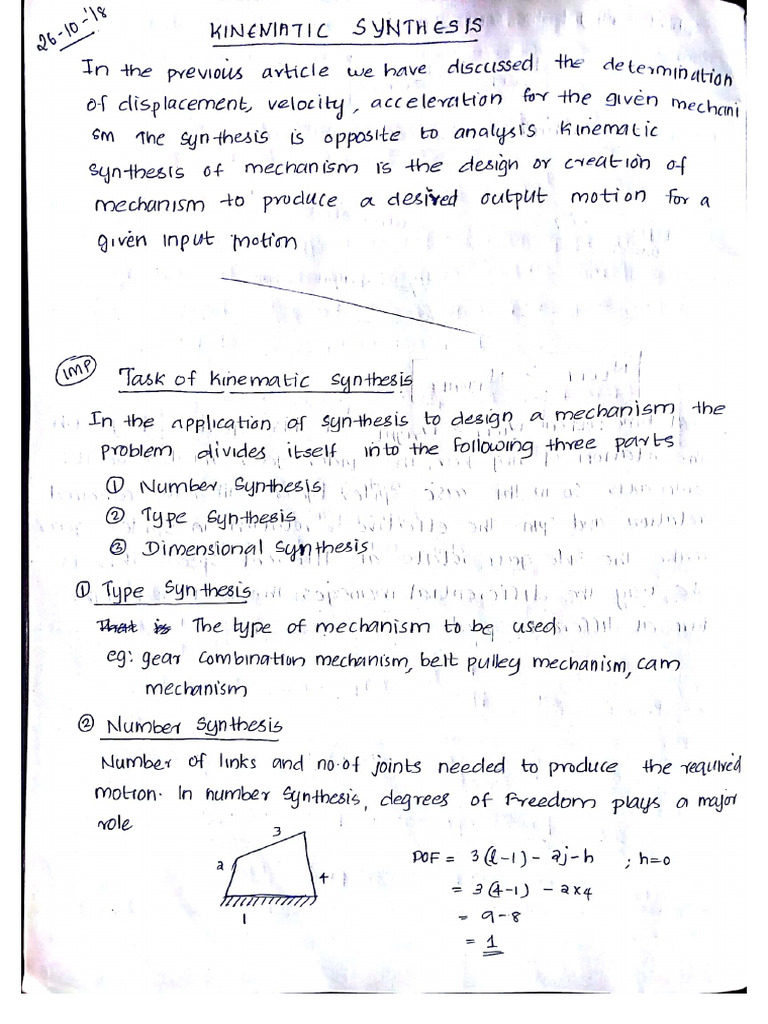 26-10-'18
KINEMATIC SYNTHESIS
In the previous article we have discussed the determination
of displacement, velocity, acceleration for the given mechani
sm The synthesis is opposite to analysis kinematic
synthesis of mechanism is the design or creation of
mechanism to produce a desired output motion for a
given input motion
IMP Task of kinematic synthesis
In the application of synthesis to design a mechanism the
problem divides itself into the following three parts
① Number synthesis
② Type synthesis
③ Dimensional synthesis
① Type synthesis
That is The type of mechanism to be used
eg: gear combination mechanism, belt pulley mechanism, cam
mechanism
② Number synthesis
Number of links and no.of joints needed to produce the required
motion. In number synthesis, degrees of freedom plays a major
role
3
2
4
1
DOF = 3(l-1) - 2j-h ; h=0
= 3(4-1) - 2×4
= 9-8
= 1